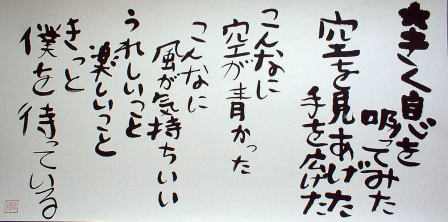 大きく息を
吸ってみた
空を見あげた
手を広げた
こんなに
空が青かった
こんなに
風が気持ちいい
うれしいこと
楽しいこと
きっと
僕を待っている